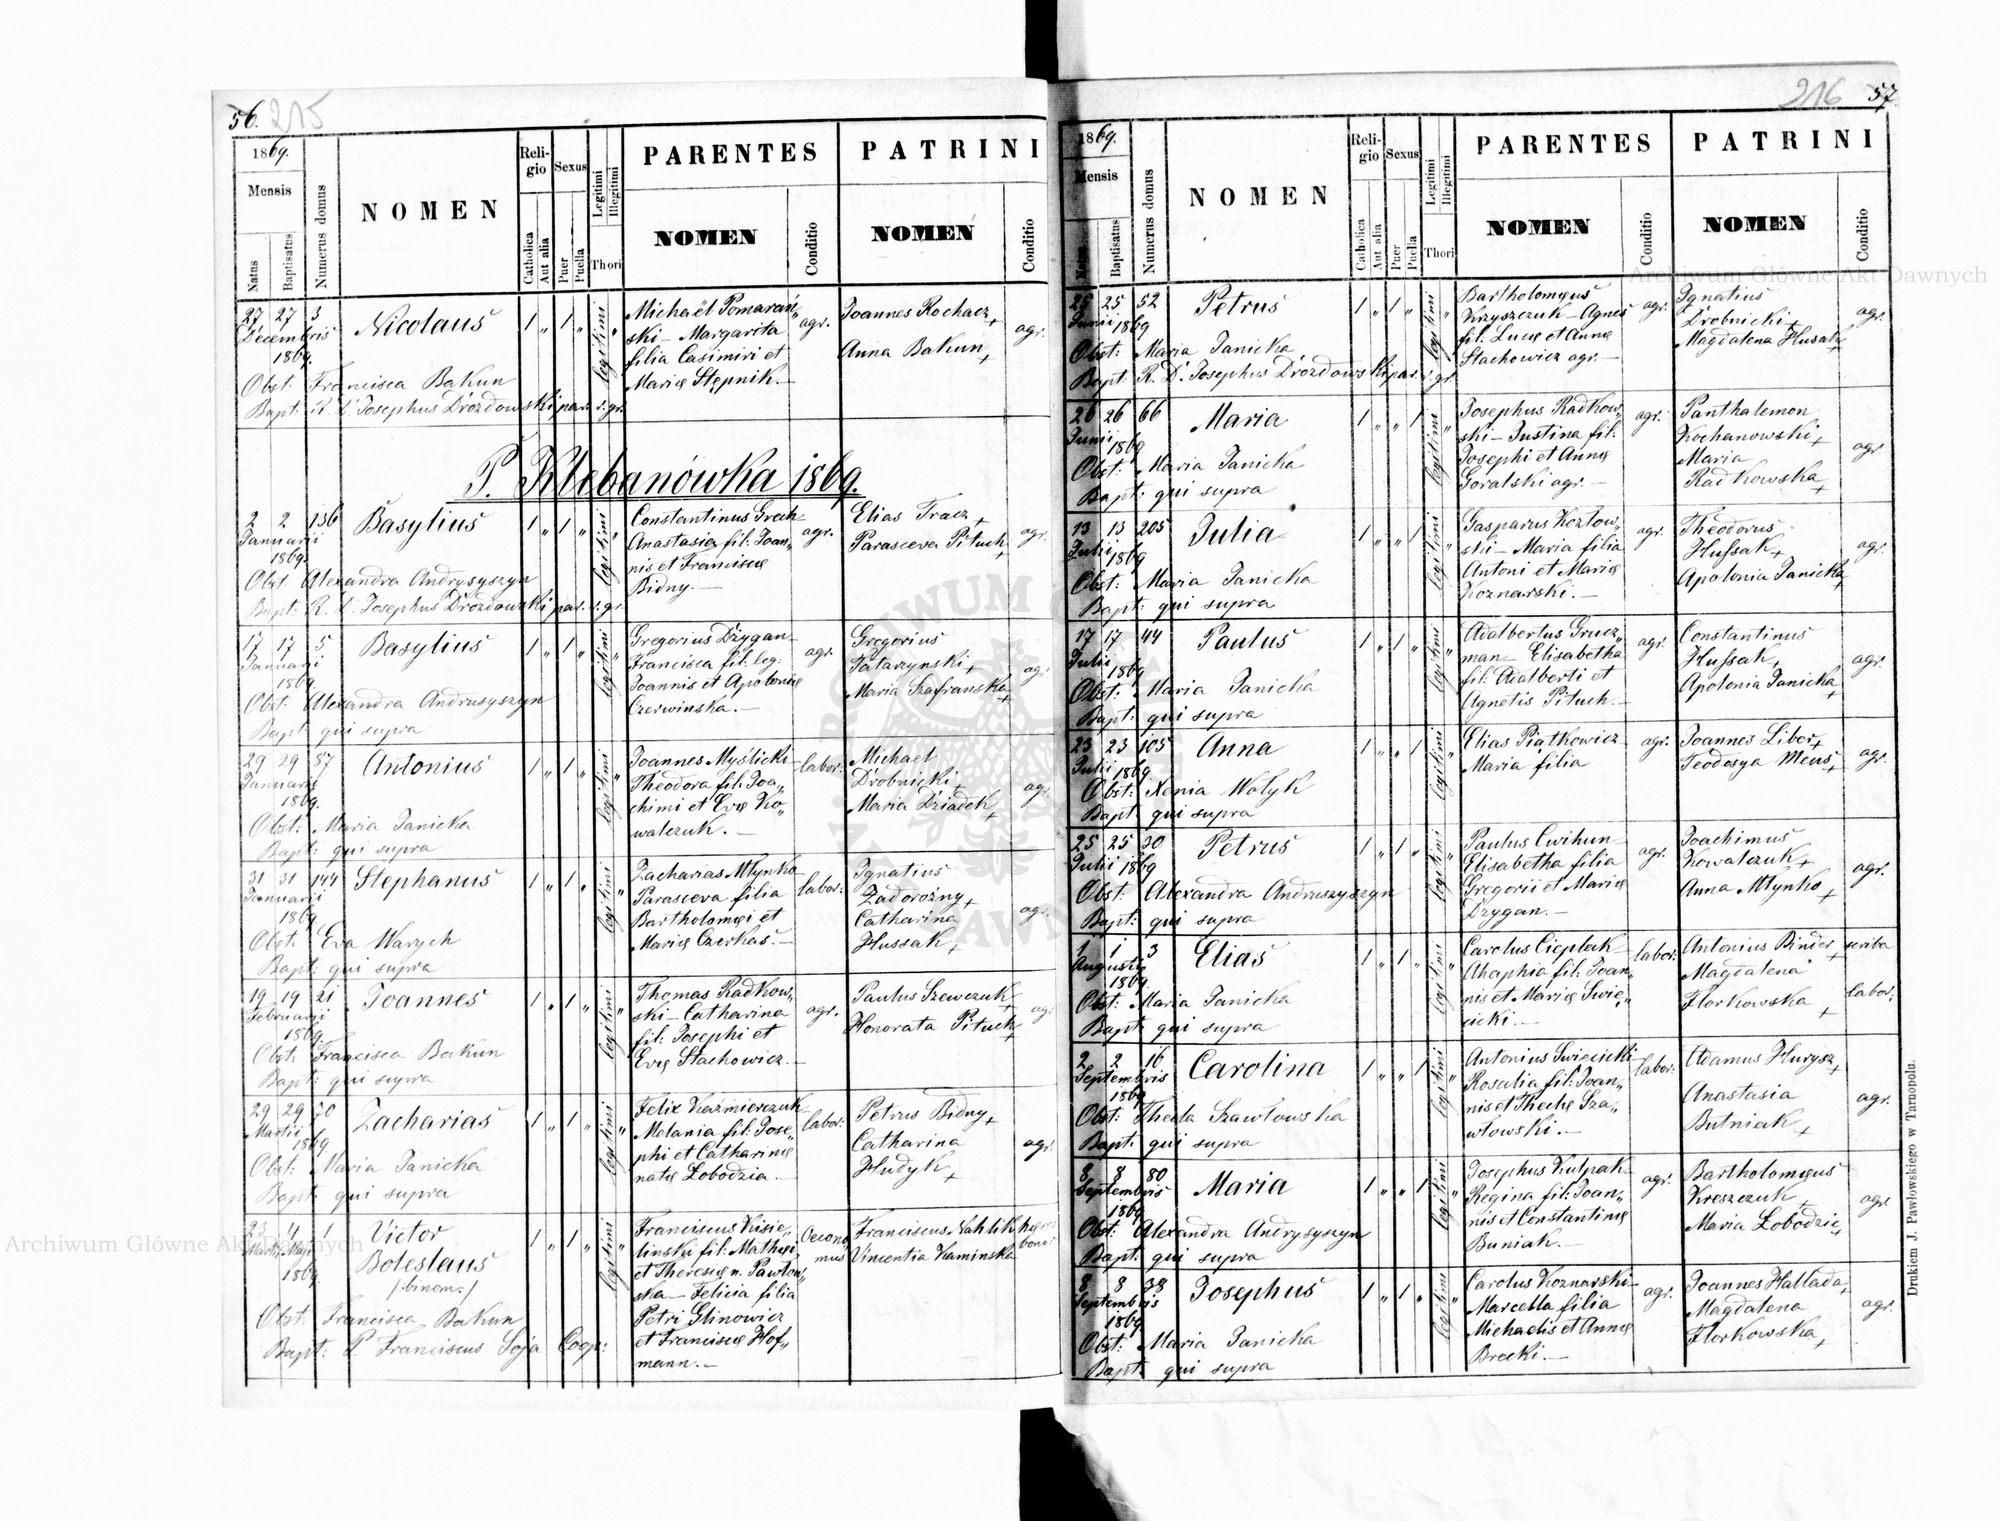 56. 215
1869.
Mensis
Natus
Baptisatus
Numerus domus
NOMEN
Religio
Catholica
Aut alia
Sexus
Puer
Puella
Legitimi
Illegitimi
Thori
PARENTES
NOMEN
Conditio
PATRINI
NOMEN
Conditio
27 27 3
Decembris
1869.
Nicolaus
1 „ 1 „
legitimi „
Michaël Pomarań„
ski – Margarita
filia Casimiri et
Marię Stępnik. –
agr.
Joannes Rochacz +
Anna Bakun +
agr.
Obst. Francisca Bakun
Bapt: R. D. Josephus Drozdowski par. r. gr.
P. Klebanówka 1869.
2 2 136
Januarii
1869.
Basylius
1 „ 1 „
legitimi „
Constantinus Grech–
Anastasia fil: Joan„
nis et Franciscę
Bidny. –
agr.
Elias Tracz +
Parasceva Pituch +
agr.
Obst Alexandra Andrysyszyn
Bapt: R. D. Josephus Drozdowski par. r. gr.
17 17 5
Januarii
1869.
Basylius
1 „ 1 „
legitimi „
Gregorius Dżygan –
Francisca fil: leg:
Joannis et Apolonię
Czerwinska. –
agr.
Gregorius
Tatarzynski +
Maria Szafranska +
agr.
Obst. Alexandra Andrusyszyn
Bapt: qui supra
29 29 87
Januarii
1869.
Antonius
1 „ 1 „
legitimi „
Joannes Myślicki –
Theodora fil: Joa„
chimi et Evę Ko„
walczuk. –
labor:
Michael
Drobnicki +
Maria Dziadek +
agr.
Obst: Maria Janicka
Bapt: qui supra
31 31 144
Januarii
1869
Stephanus
1 „ 1 „
legitimi „
Zacharias Młynko
Parasceva filia
Bartholomęi et
Marię Czerkas. –
labor:
Ignatius
Zadorożny +
Catharina
Hussak +
agr.
Obst. Eva Warych
Bapt: qui supra
19 19 21
Februarii
1869
Joannes
1 „ 1 „
legitimi „
Thomas Radkow„
ski – Catharina
fil: Josephi et
Evę Stachowicz. –
agr.
Paulus Szewczuk +
Honorata Pituch +
agr
Obst. Francisca Bakun
Bapt: qui supra
29 29 70
Martii
1869
Zacharias
1 „ 1 „
legitimi „
Felix Kaźmierczuk –
Melania fil: Jose„
phi et Catharinę
natę Łobodzia. –
labor:
Petrus Bidny +
Catharina
Hudyk +
agr.
Obst: Maria Janicka
Bapt: qui supra
23 4 1
Martii Maji
1869.
Victor
Boleslaus
/:binom:/
1 „ 1 „
legitimi „
Franciscus Kisie„
linski fil: Mathęi
et Theresię n. Pawłow„
ska – Felicia filia
Petri Glinowicz
et Franciscę Hof„
mann. –
Oecono
mus
Franciscus Nahlik
Vincentia Kaminska
hęres
bonor
Obst. Francisca Bakun
Bapt: P. Franciscus Soja Coop:
216 57.
1869.
Mensis
Baptisatus
Numerus domus
NOMEN
Religio
Catholica
Aut alia
Sexus
Puer
Puella
Legitimi
Illegitimi
Thori
PARENTES
NOMEN
Conditio
PATRINI
NOMEN
Conditio
25 25 52
Junii 1869
Petrus
1 „ 1 „
legitimi „
Bartholomęus
Krzyszczuk – Agnes
fil. Lucę et Annę
Stachowicz agr. –
agr.
Ignatius
Drobnicki +
Magdalena Husak +
agr.
Obst: Maria Janicka
Bapt: R. D. Josephus Drozdowski par. r. gr.
26 26 66
Junii
1869
Maria
1 „ „ 1
legitimi „
Josephus Radkow„
ski – Justina fil:
Josephi et Annę
Goralski agr. –
agr.
Panthalemon
Kochanowski +
Maria
Radkowska +
agr.
Obst: Maria Janicka
Bapt: qui supra
13 13 205
Julii
1869
Julia
1 „ „ 1
legitimi „
Gasparus Kozłow„
ski – Maria filia
Antoni et Marię
Koznarski. –
agr.
Theodorus
Hussak +
Apolonia Janicka +
agr.
Obst: Maria Janicka
Bapt: qui supra
17 17 44
Julii
1869
Paulus
1 „ 1 „
legitimi „
Adalbertus Grucz„
man – Elisabetha
fil: Adalberti et
Agnetis Pituch. –
agr.
Constantinus
Hussak +
Apolonia Janicka +
agr.
Obst: Maria Janicka
Bapt: qui supra
23 23 105
Julii 1869.
Anna
1 „ „ 1
legitimi „
Elias Piatkowicz –
Maria filia
agr.
Joannes Liber +
Teodosya Meus +
agr.
Obst: Xenia Wołyk
Bapt: qui supra
25 25 30
Julii 1869
Petrus
1 „ 1 „
legitimi „
Paulus Cwihun –
Elisabetha filia
Gregorii et Marię
Dzygan. –
agr.
Joachimus
Kowalczuk +
Anna Młynko +
agr.
Obst: Alexandra Andruszyszyn
Bapt: qui supra
1 1 3
Augusti
1869.
Elias
1 „ 1 „
legitimi „
Carolus Cieplak –
Ahaphia fil: Joan„
nis et Marię Swię„
cicki. –
labor:
Antonius Binder +
Magdalena
Florkowska +
scriba
labor:
Obst: Maria Janicka
Bapt: qui supra
2 2 16
Septembris
1869
Carolina
1 „ „ 1
legitimi „
Antonius Swiecicki
Rosalia fil: Joan„
nis et Theclę Sza„
włowski. –
labor:
Adamus Hurysz +
Anastasia
Butniak +
agr.
Obst: Thecla Szawłowska
Bapt: qui supra
8 8 80
Septembris
1869
Maria
1 „ „ 1
legitimi „
Josephus Kulpak –
Regina fil: Joan„
nis et Constantinę
Buniak. –
agr.
Bartholomęus
Kreszczuk +
Maria Łobodzic +
agr.
Obst: Alexandra Andrysyszyn
Bapt: qui supra
8 8 38
Septembris
1869
Josephus
1 „ 1 „
legitimi „
Carolus Koznarski –
Marcella filia
Michaelis et Annę
Brecki. –
agr.
Joannes Hallada +
Magdalena
Florkowska +
agr.
Obst: Maria Janicka
Bapt: qui supra
Drukiem J. Pawłowskiego w Tarnopolu.
Archiwum Główne Akt Dawnych
Archiwum Główne Akt Dawnych